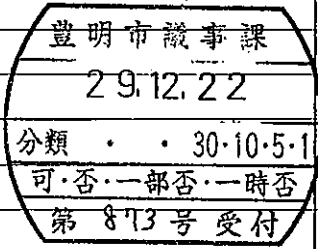 豊明市議事課
29.12.22
分類 ・ ・ 30・10・5・1
可・否・一部否・一時否
第 873 号 受付